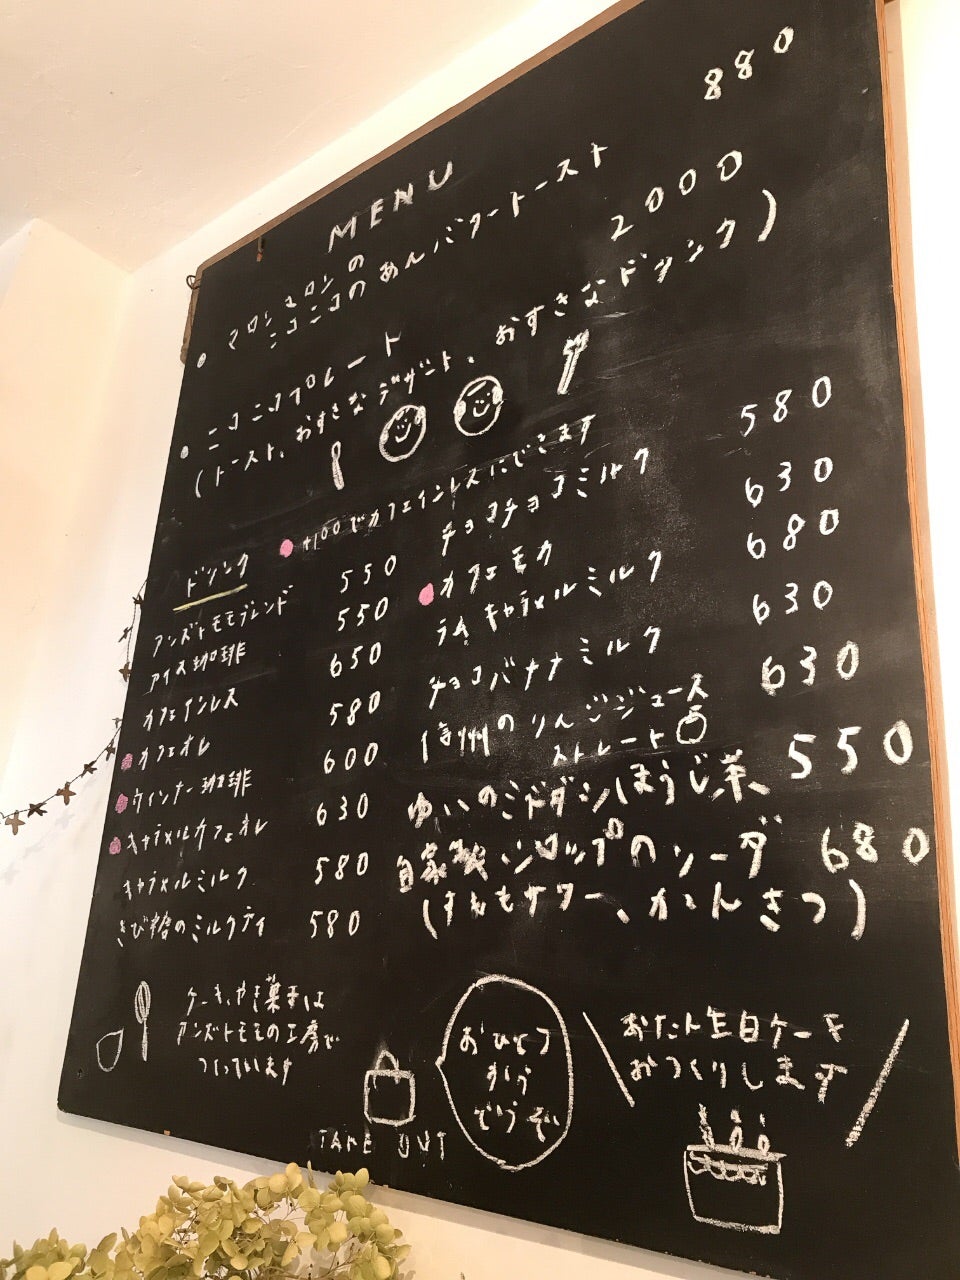 MENU
マロンマロンの
ニコニコのあんバタートースト 880
ニコニコプレート 2000
(トースト、おすきなデザート、おすきなドリンク)
ドリンク
+100でカフェインレスにできます
アンズトモモブレンド 550
アイス珈琲 550
カフェインレス 650
カフェオレ 580
ウインナー珈琲 600
キャラメルカフェオレ 630
キャラメルミルク 580
きび糖のミルクティ 580
チョコチョコミルク 580
カフェモカ 630
ラムキャラメルミルク 680
チョコバナナミルク 630
信州のりんごジュース 630
ストレート
ゆいのミドダシほうじ茶 550
自家製シロップのソーダ 680
(すももサワー、かんきつ)
ケーキ、やき菓子は
アンズトモモの工房で
つくっています
TAKE OUT
おひとつ
から
どうぞ
おたん生日ケーキ
おつくりします